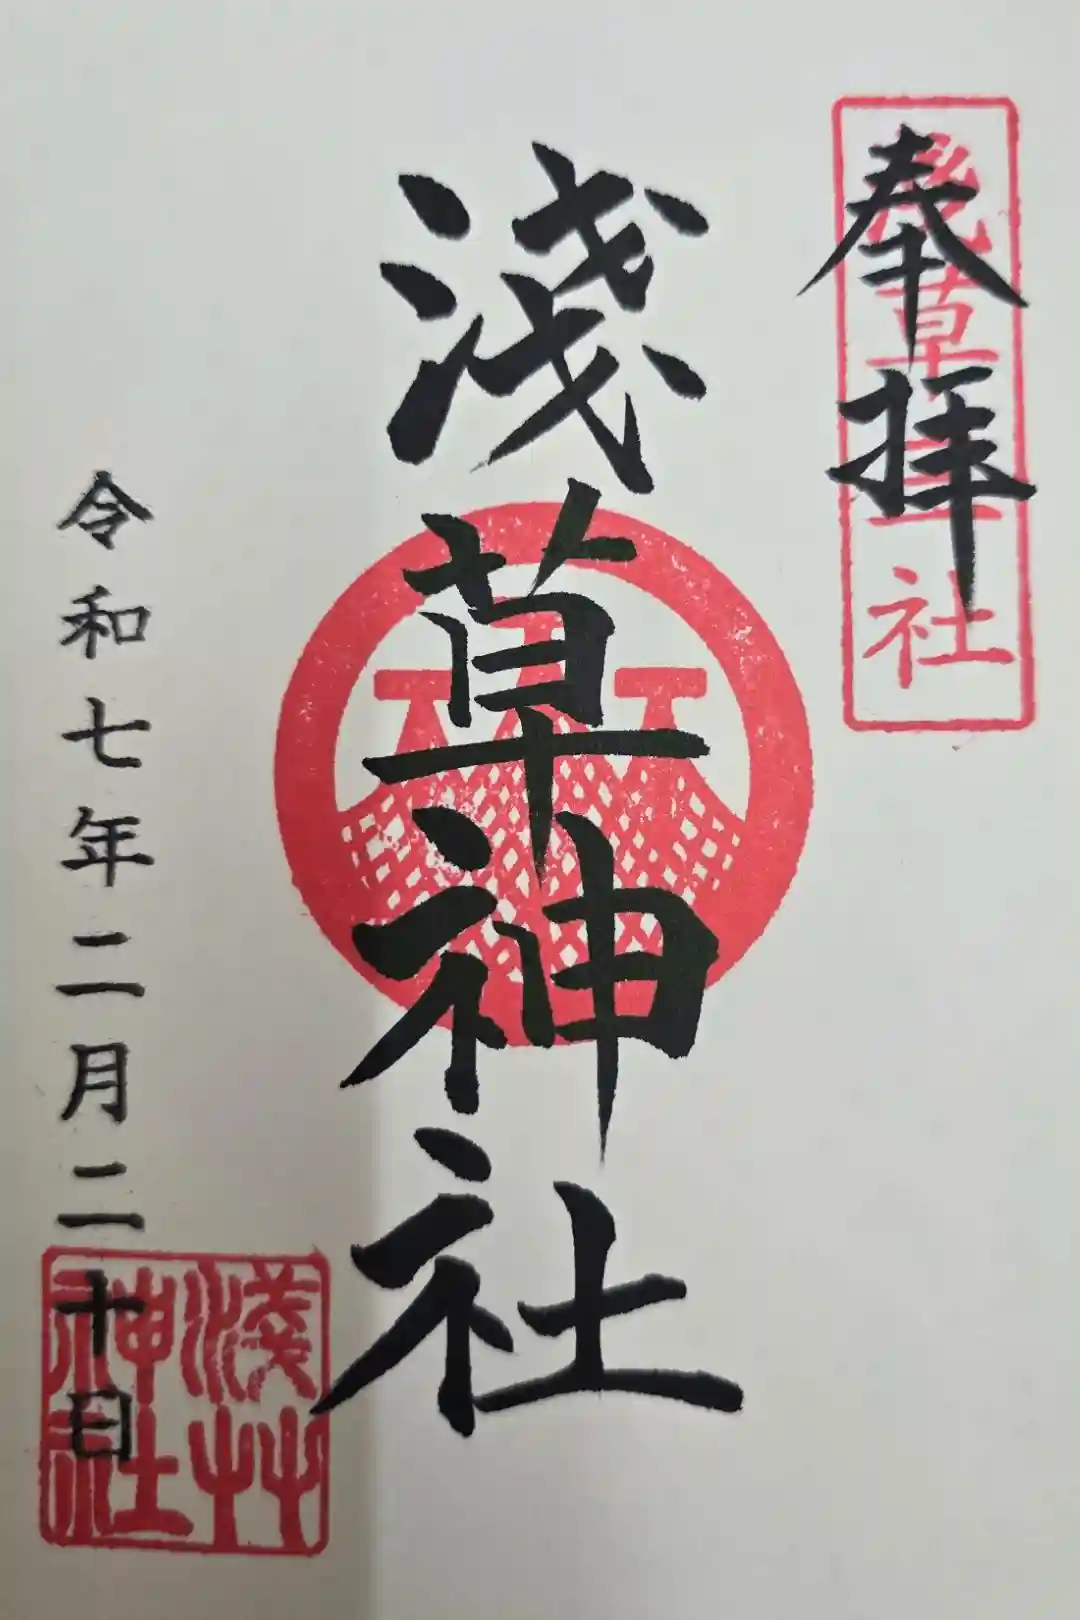 奉拝
浅草三社
浅草神社
令和七年二月二十日
浅草
神社